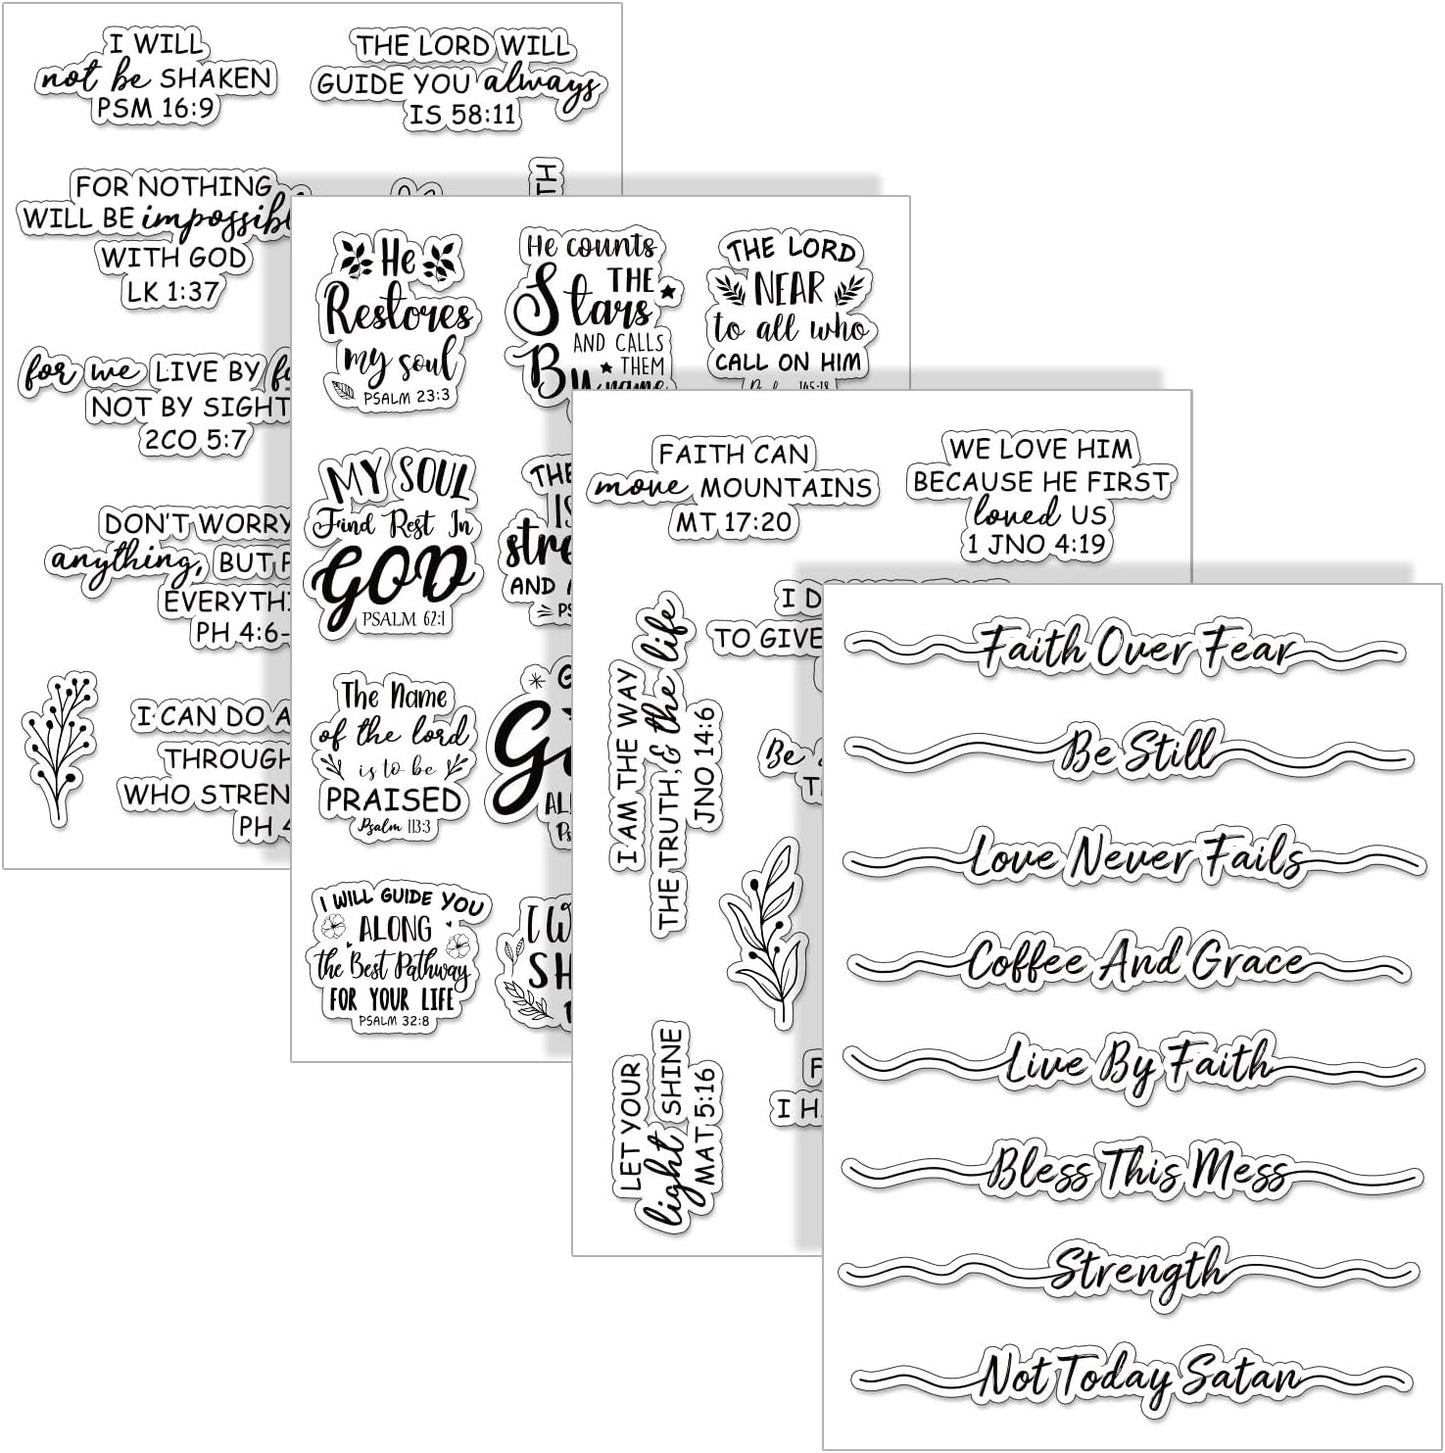 I WILL
not be SHAKEN
PSM 16:9
THE LORD WILL
GUIDE YOU always
IS 58:11
FOR NOTHING
WILL BE impossible
WITH GOD
LK 1:37
for we LIVE BY
NOT BY SIGHT
2CO 5:7
DON'T WORRY
anything, BUT
PH 4:6-
I CAN DO
THROUGH
WHO
PH
He
Restores
my soul
PSALM 23:3
He counts
THE
Stars
AND CALLS
THEM
By name
THE LORD
NEAR
to all who
CALL ON HIM
Psalm 145:18
MY SOUL
Find Rest In
GOD
PSALM 62:1
THE
IS
AND
The Name
of the lord
is to be
PRAISED
Psalm 113:3
I WILL GUIDE YOU
ALONG
the Best Pathway
FOR YOUR LIFE
PSALM 32:8
I
FAITH CAN
move MOUNTAINS
MT 17:20
WE LOVE HIM
BECAUSE HE FIRST
loved US
1 JNO 4:19
I
TO GIVE
I AM THE WAY
THE TRUTH, & the life
JNO 14:6
Be
LET YOUR
light SHINE
MAT 5:16
I
Faith Over Fear
Be Still
Love Never Fails
Coffee And Grace
Live By Faith
Bless This Mess
Strength
Not Today Satan